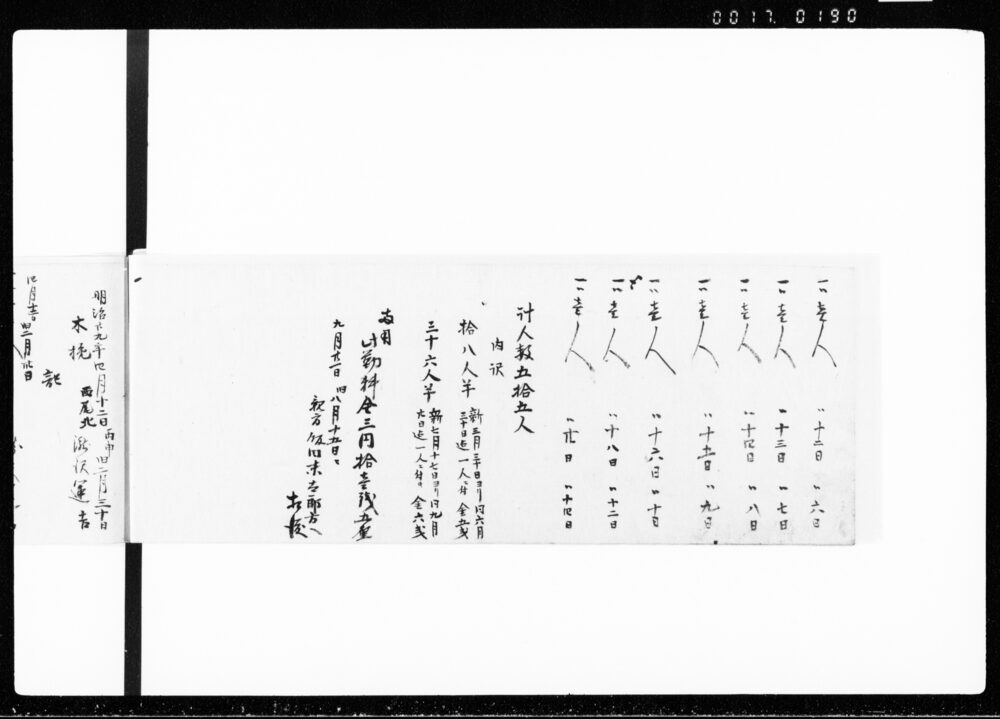 0017 0190
一〃壱人 〃十二日 〃六日
一〃壱人 〃十三日 〃七日
一〃壱人 〃十四日 〃八日
一〃壱人 〃十五日 〃九日
一〃壱人 〃十六日 〃十日
一〃壱人 〃十八日 〃十二日
一〃壱人 〃廿日 〃十四日
計人数五拾五人
内沢
拾八人半 新三月三十日ヨリ旧六月
三十日迄一人ニ付 金五戋
三十六人半 新七月十七日ヨリ旧九月
六日迄一人ニ付 金六戋
両口
〆勤料金三円拾壱戋五厘
九月廿二日 旧八月十五日ニ
親方飯田末太郎方へ
相渡
明治廿九年四月十二日 丙申旧二月三十日
木挽 西尾北 瀧沢運吉
記
旧二月廿日